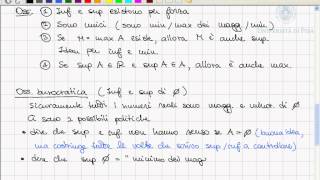 Oss. ① Inf e sup esistono per forza
② Sono unici (sono min/max dei magg/min.)
③ Se M = max A esiste, allora M è anche sup.
Idem per inf e min.
④ Se sup A ∈ R e sup A ∈ A, allora
Oss. burocratica (inf e sup di ∅)
Sicuramente tutti i numeri reali sono magg. e minor. di ∅
Ci sono 2 possibili politiche
• dire che sup e inf non hanno senso se A = ∅ (buona idea,
ma costringe tutte le volte che scrivo sup/inf a controllare)
• dire che sup ∅ = "minimo dei mag